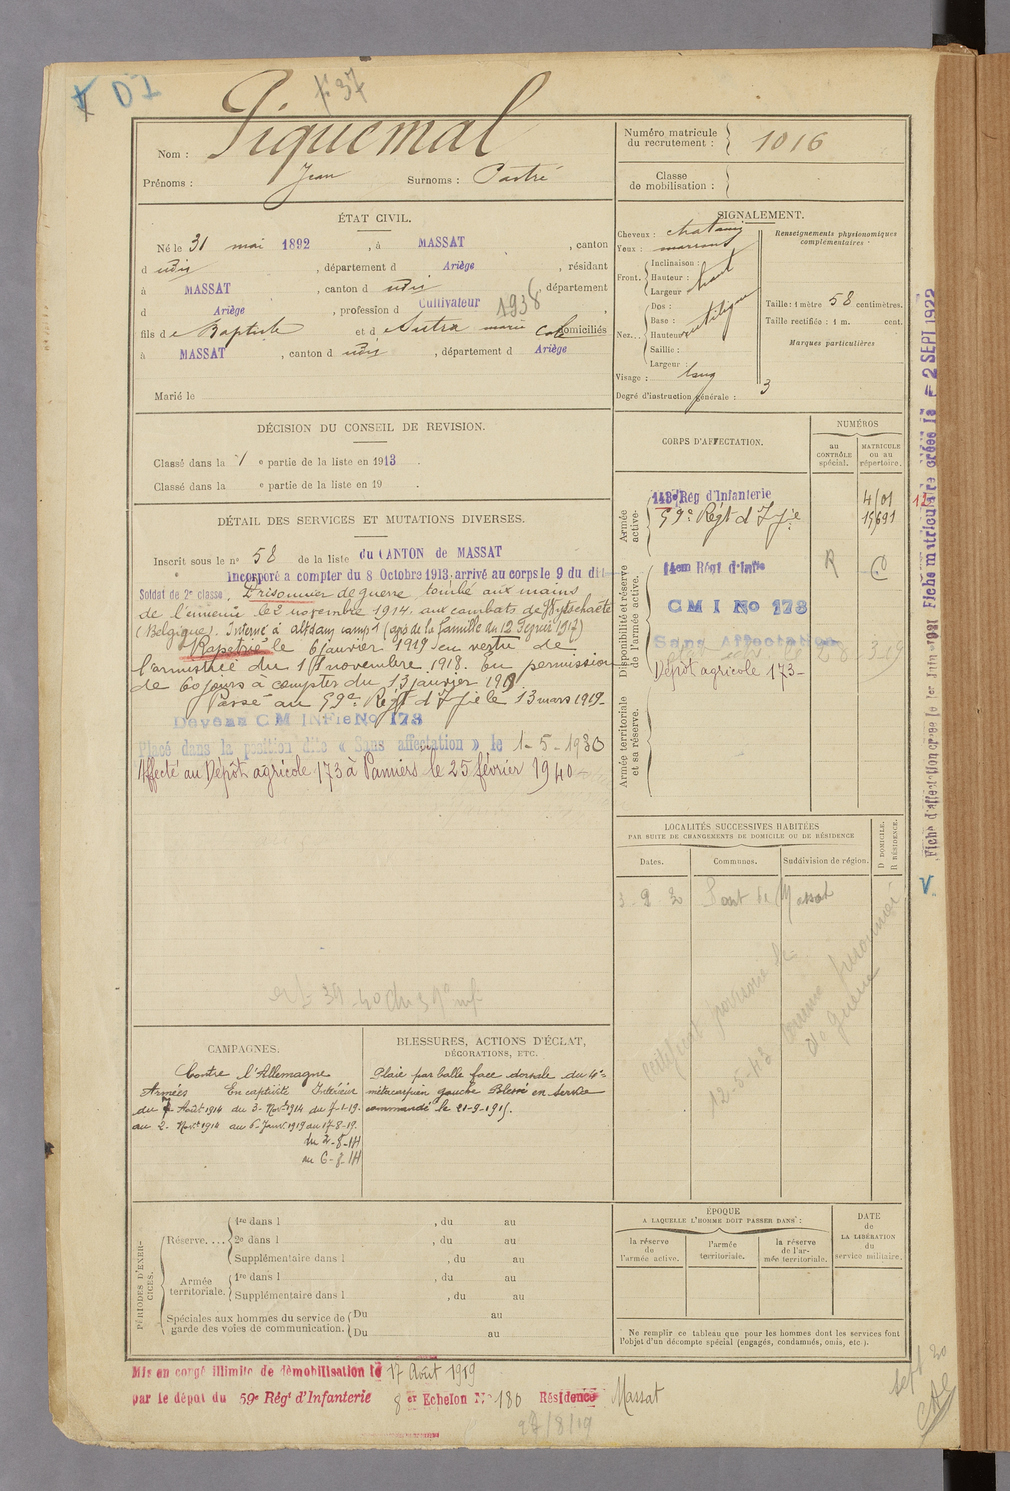 F 37
Nom : Piquemal
Prénoms : Jean Surnoms : Castré
Numéro matricule du recrutement : 1016
Classe de mobilisation :
ÉTAT CIVIL.
Né le 31 mai 1892, à MASSAT, canton
d udis, département d Ariège, résidant
à MASSAT, canton d udis, département
d Ariège, profession d Cultivateur
1938
fils de Baptiste et d Autra marie domiciliés
à MASSAT, canton d udis, département d Ariège
Marié le
SIGNALEMENT.
Cheveux : chatains
Yeux : marrons
Front. Inclinaison :
Hauteur : haut
Largeur :
Nez... Dos :
Base :
Hauteur rectiligne
Saillie :
Largeur :
Visage : long
Degré d'instruction générale : 3
Renseignements physionomiques complémentaires :
Taille : 1 mètre 58 centimètres.
Taille rectifiée : 1 m. cent.
Marques particulières
DÉCISION DU CONSEIL DE REVISION.
Classé dans la 1 e partie de la liste en 1913.
Classé dans la e partie de la liste en 19 .
DÉTAIL DES SERVICES ET MUTATIONS DIVERSES.
Inscrit sous le n° 58 de la liste du CANTON de MASSAT
Incorporé a compter du 8 Octobre 1913, arrivé au corps le 9 du dit
Soldat de 2e classe. Prisonnier de guerre tombé aux mains
de l'ennemi le 2 novembre 1914. aux combats de Wytschaete
(Belgique). Interné à altdam camp 1 (avis de la famille du 12 1917)
Rapatrié le 6 janvier 1919 en vertu de
l'armistice du 11 novembre 1918. En permission
de 60 jours à compter du 13 janvier 1919.
Passé au 59e Régt d'Ifie le 13 mars 1919-
Devenu C M INFie No 173
Placé dans la position dite « Sans affectation » le 1-5-1930
Affecté au Dépôt agricole 173 à Pamiers le 25 février 1940
CORPS D'AFFECTATION.
NUMÉROS
au CONTRÔLE spécial.
MATRICULE ou au répertoire.
Armée active.
143e Rég d'Infanterie 4101
59e Régt d'Ifie 15691
Disponibilité et réserve de l'armée active.
14em Régt d'Inftie R
C M I No 173
Sans Affectation
Dépôt agricole 173-
Armée territoriale et sa réserve.
LOCALITÉS SUCCESSIVES HABITÉES
PAR SUITE DE CHANGEMENTS DE DOMICILE OU DE RÉSIDENCE
Dates. Communes. Subdivision de région. D DOMICILE. R RÉSIDENCE.
3-9-20 Massat
Certificat
comme prisonnier
de guerre
12-5-43
CAMPAGNES.
Contre l'Allemagne
Armées En captivité Intérieur
du Août 1914 du 3- Novbre 1914 du 7-1-19-
au 2- Novbre 1914 au 6- Janv. 1919 au 17-8-19.
du 2-8-14
au 6-8-14
BLESSURES, ACTIONS D'ÉCLAT,
DÉCORATIONS, ETC.
Plaie par balle face dorsale du 4e
métacarpien gauche Blessé en service
commandé le 21-9-1915.
PÉRIODES D'EXERCICES.
Réserve.... 1re dans l , du au
2e dans l , du au
Supplémentaire dans l , du au
Armée territoriale. 1re dans l , du au
Supplémentaire dans l , du au
Spéciales aux hommes du service de garde des voies de communication. Du au
Du au
ÉPOQUE
A LAQUELLE L'HOMME DOIT PASSER DANS :
la réserve de l'armée active.
l'armée territoriale.
la réserve de l'armée territoriale.
DATE de LA LIBÉRATION du service militaire.
Ne remplir ce tableau que pour les hommes dont les services font
l'objet d'un décompte spécial (engagés, condamnés, omis, etc.).
Mis en congé illimité de démobilisation le 17 Août 1919
par le dépot du 59e Régt d'Infanterie 8er Echelon N° 180 Résidence Massat
27/8/19
Sept 20
Fiche d'affectation créée le 1er Juin 1931 Fiche matriculaire créée le 2 SEPT 1922
V